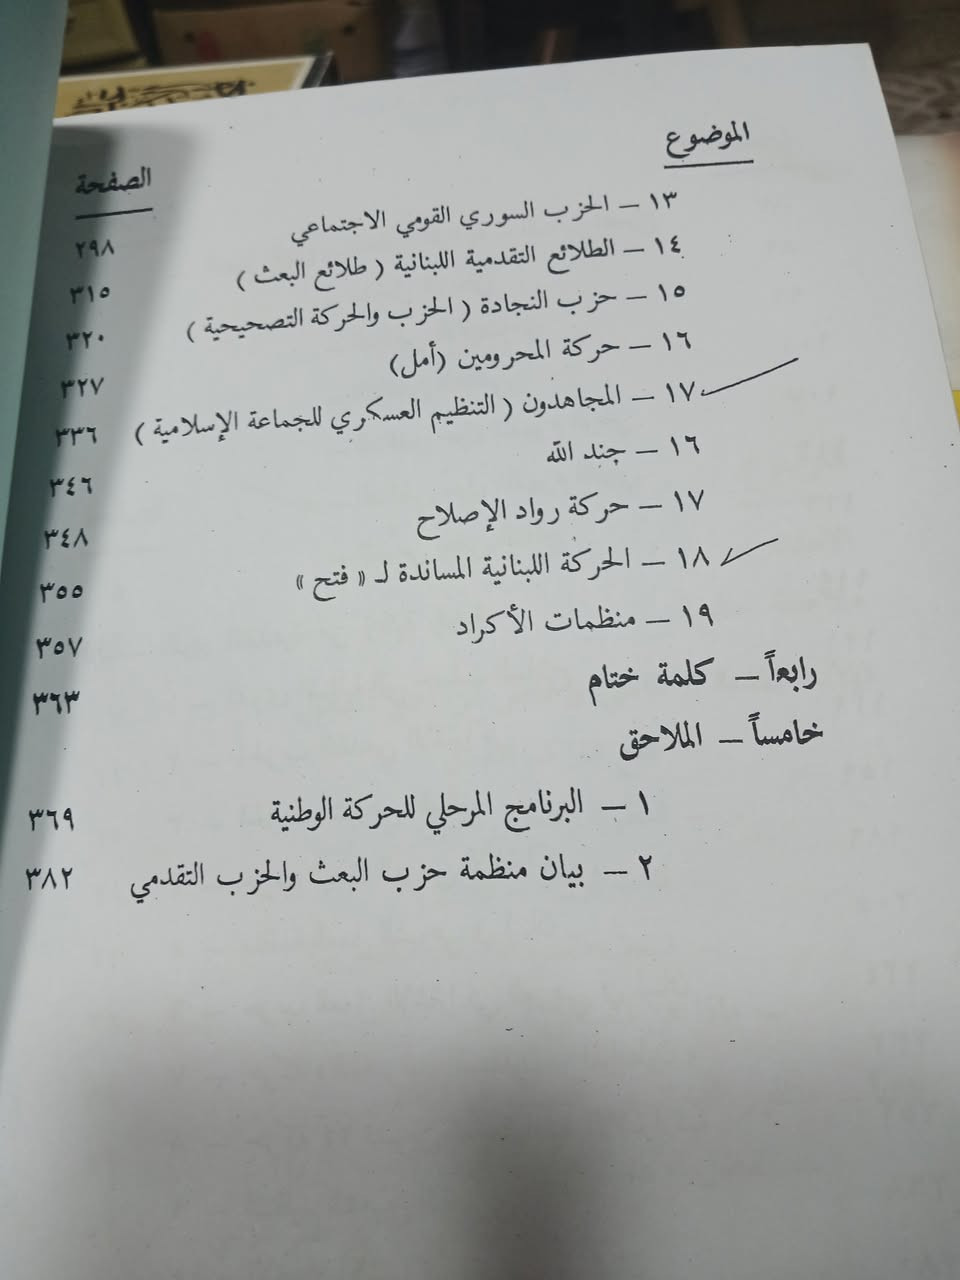 الموضوع الصفحة
١٣ – الحزب السوري القومي الاجتماعي ٢٩٨
١٤ – الطلائع التقدمية اللبنانية ( طلائع البعث ) ٣١٥
١٥ – حزب النجادة ( الحزب والحركة التصحيحية ) ٣٢٠
١٦ – حركة المحرومين (أمل) ٣٢٧
١٧ – المجاهدون ( التنظيم العسكري للجماعة الإسلامية ) ٣٣٦
١٦ – جند الله ٣٤٦
١٧ – حركة رواد الإصلاح ٣٤٨
١٨ – الحركة اللبنانية المساندة لـ « فتح » ٣٥٥
١٩ – منظمات الأكراد ٣٥٧
رابعاً – كلمة ختام ٣٦٣
خامساً – الملاحق
١ – البرنامج المرحلي للحركة الوطنية ٣٦٩
٢ – بيان منظمة حزب البعث والحزب التقدمي ٣٨٢